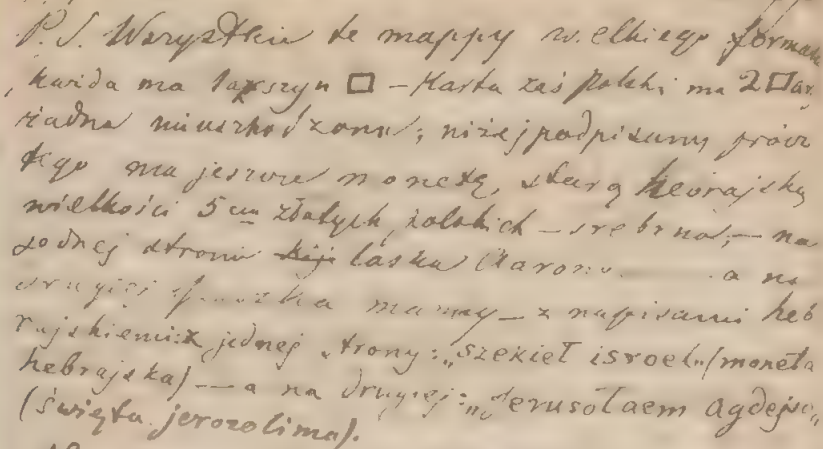 P.S. Wszystkie te mappy wielkiego formatu
, każda ma 1 arszyn □ – Karta zaś Polski ma 2 □ ar.
żadna nieuszkodzona; niżej podpisany prócz
tego ma jeszcze monetę, starą hebrajską
wielkości 5ciu złotych polskich – srebrna, – na
jednej stronie kij laska Aarona – a na
drugiej puszka manny – z napisami heb
rajskiemi: z jednej strony: „szekieł isroel" (moneta
hebrajska) – a na drugiej: „Jerusołaem
(święta jerozolima).